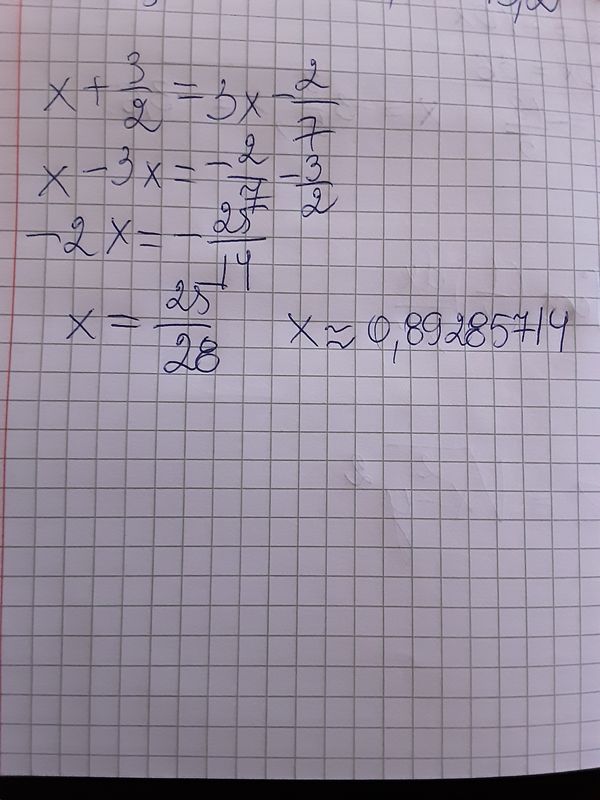 x + 3/2 = 3x - 2/7
x - 3x = -2/7 - 3/2
-2x = -25/14
x = 25/28 x ≈ 0,89285714